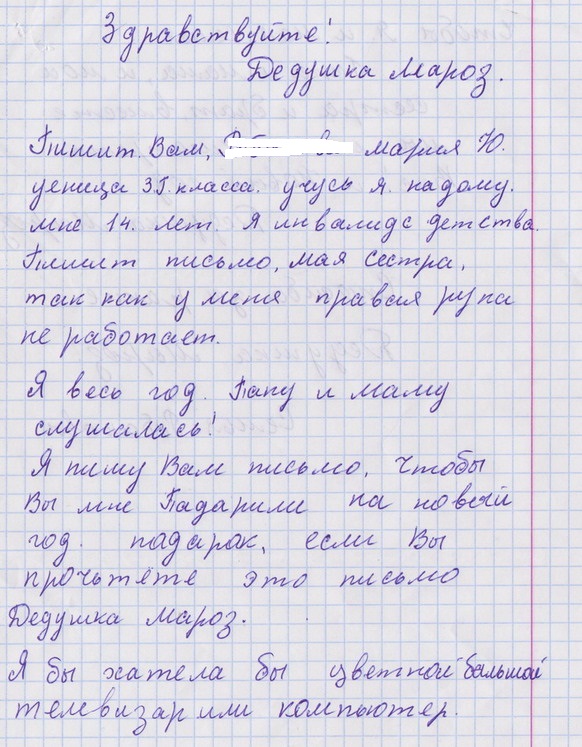 Здравствуйте!
Дедушка Мароз.
Пишит Вам, мария Ю.
уеница 3Г.класса. учусь я. надому.
мне 14. лет. я инвалидс детства.
Пишит письмо, мая сестра,
так как у меня правая рука
не работает.
Я весь год. Папу и маму
слушалась!
Я пишу Вам письмо, чтобы
Вы мне Падарили на новый
год. падарак, если Вы
прочьтёте это письмо
Дедушка Мароз.
Я бы хатела бы цветной бальшой
телевизар или компьютер.